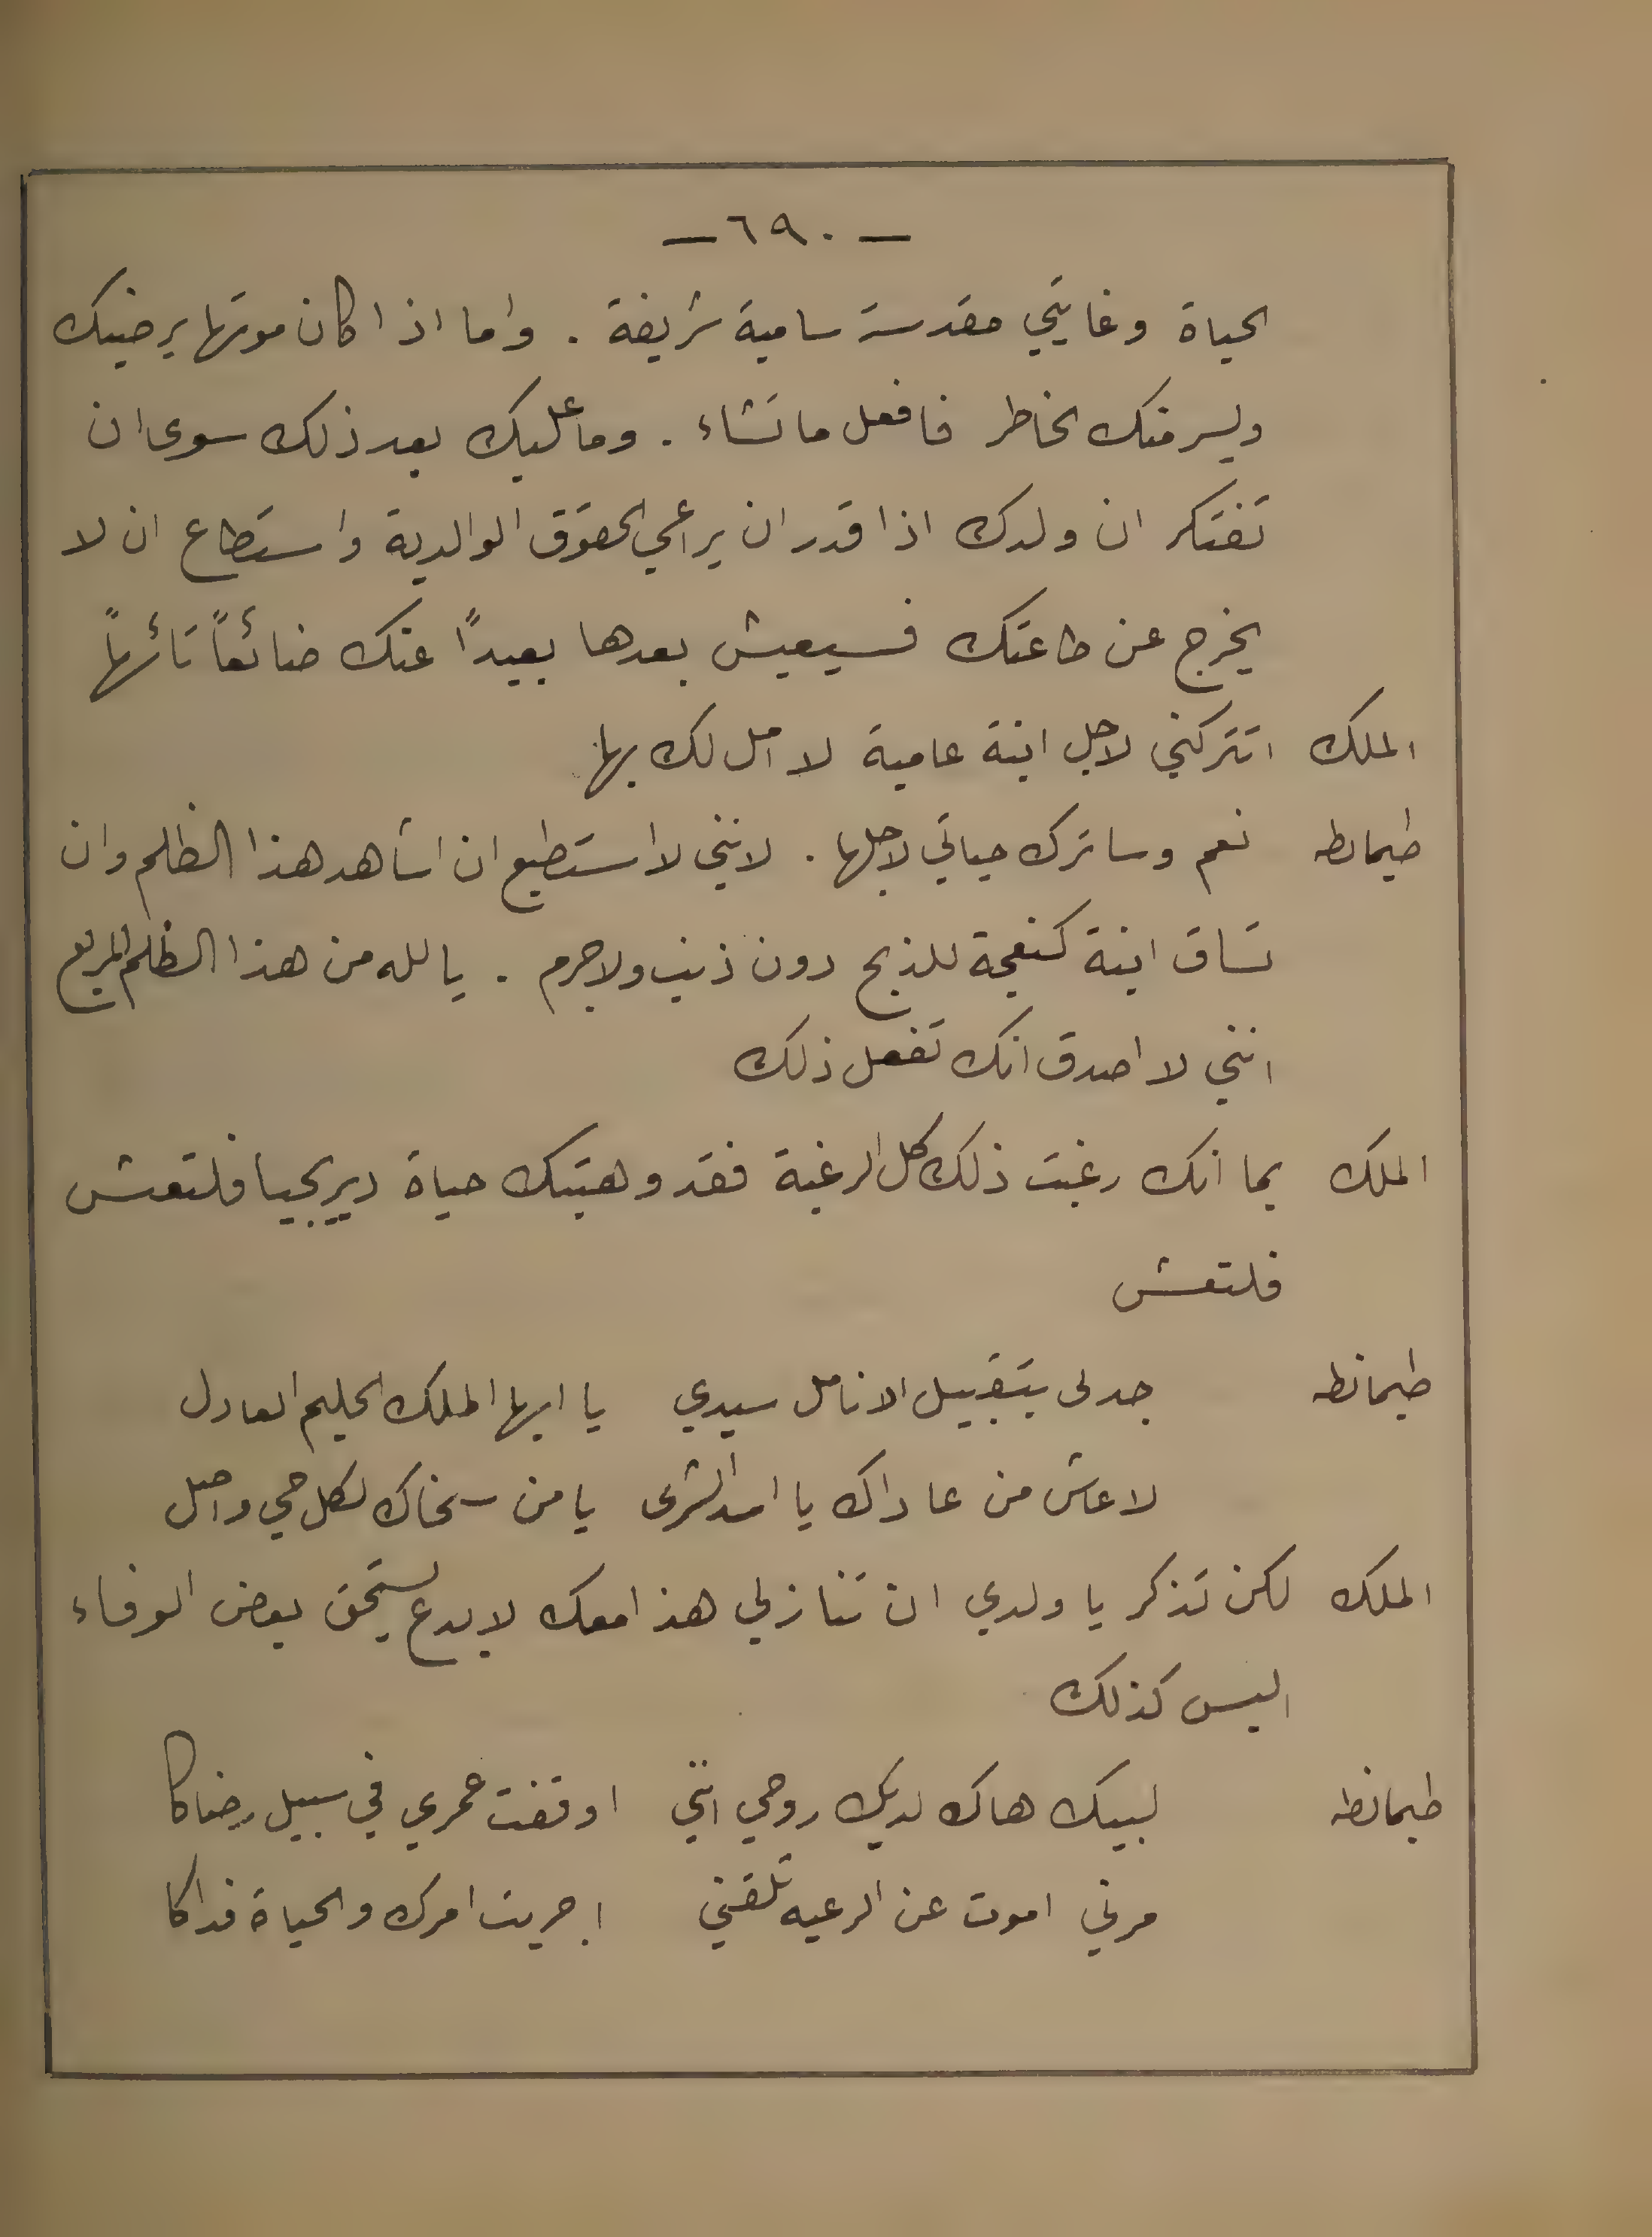 — ٦٩٠ —
الحياة وغايتي مقدسة سامية شريفة . واما اذا كان موتها يرضيك
ويسر منك الخاطر فافعل ما تشاء . وما عليك بعد ذلك سوى ان
تفتكر ان ولدك اذا قدر ان يراعي الحقوق الوالدية واستطاع ان لا
يخرج عن طاعتك فسيعيش بعدها بعيداً عنك ضائعاً تائهاً
الملك اتتركني لاجل ابنة عامية لا امل لك بها
طيمانطه نعم وساترك حياتي لاجلها . لانني لا استطيع ان اشاهد هذا الظلم وان
تساق ابنة كنعجة للذبح دون ذنب ولا جرم . يا لله من هذا الظلم المريع
انني لا اصدق انك تفعل ذلك
الملك بما انك رغبت ذلك كل الرغبة فقد وهبتك حياة ديريجيا فلتعش
فلتعش
طيمانطه جد لي بتقبيل الانامل سيدي يا ايها الملك الحليم العادل
لا عاش من عاداك يا اسد الشرى يا من سخاك لكل حي واصل
الملك لكن تذكر يا ولدي ان تنازلي هذا معك لا بدع يستحق بعض الوفاء
اليس كذلك
طيمانطه لبيك هاك لديك روحي انني اوقفت عمري في سبيل رضاكا
مرني اموت عن الرعيه تلقني اجريت امرك والحياة فداكا